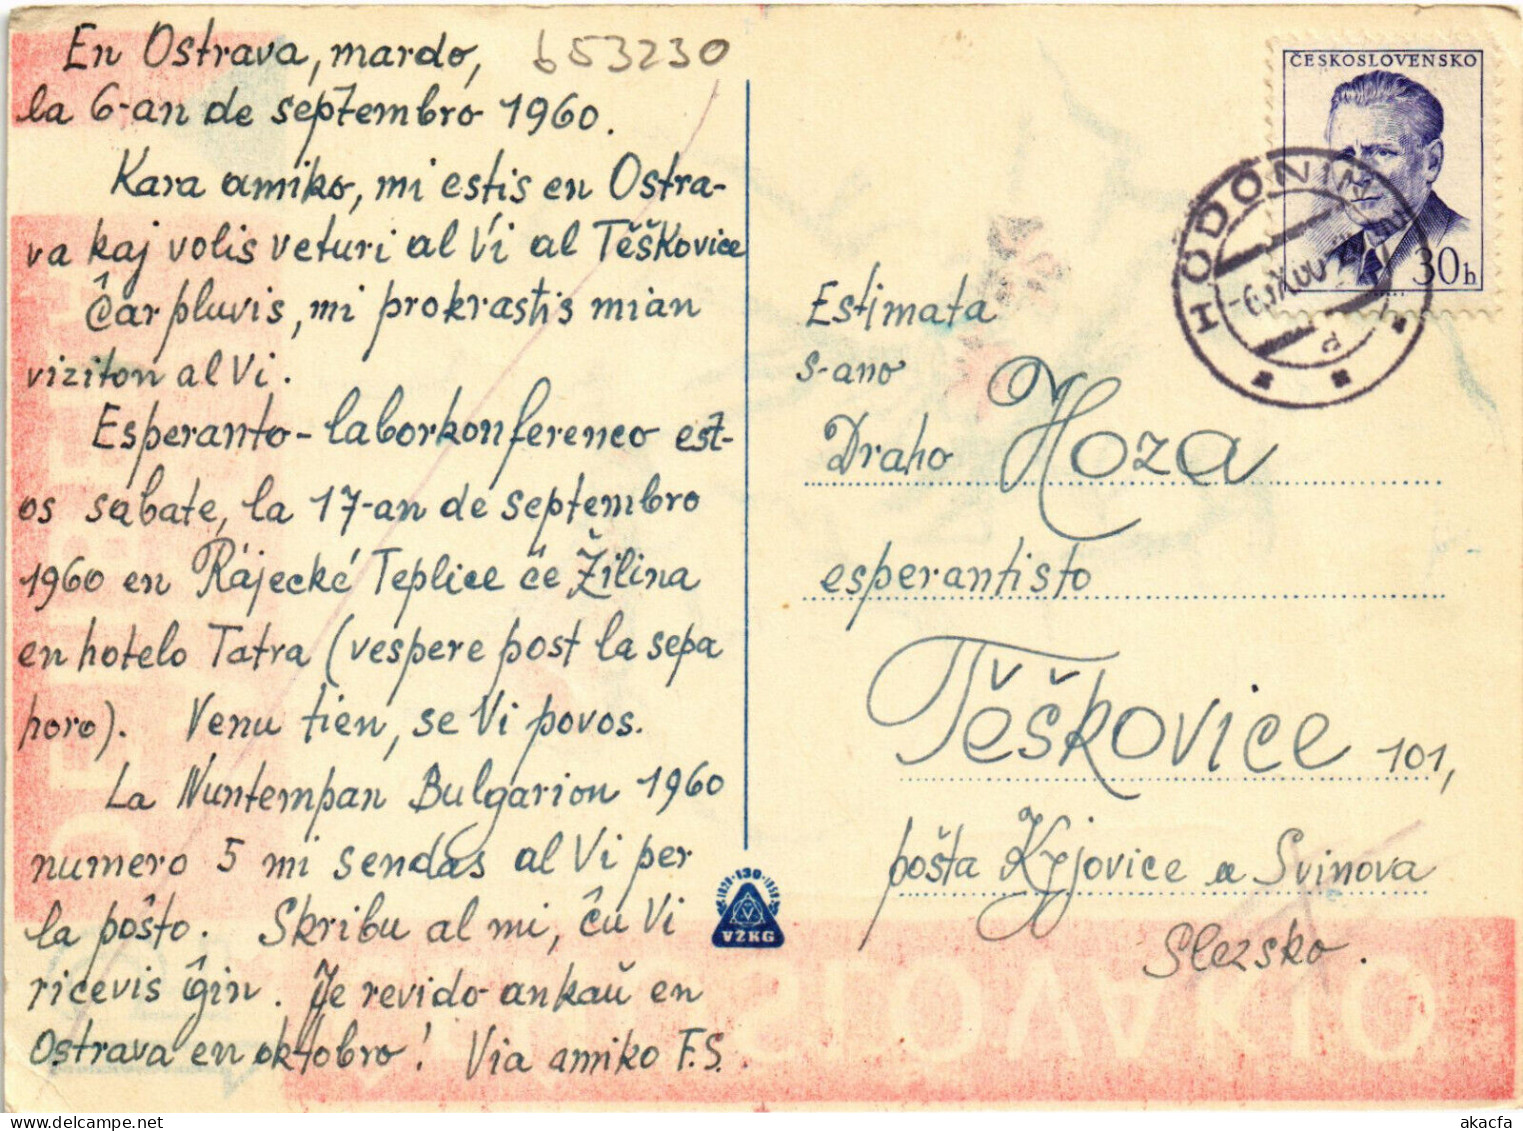 En Ostrava, mardo, 653230
la 6-an de septembro 1960.
Kara amiko, mi estis en Ostra-
va kaj volis veturi al Vi al Těškovice
Ĉar pluvis, mi prokrastis mian
viziton al Vi.
Esperanto-laborkonferenco est-
os sabate, la 17-an de septembro
1960 en Rájecké Teplice ĉe Žilina
en hotelo Tatra (vespere post la sepa
horo). Venu tien, se Vi povos.
La Nuntempan Bulgarion 1960
numero 5 mi sendas al Vi per
la poŝto. Skribu al mi, ĉu Vi
ricevis ĝin. Ĝe revido ankaŭ en
Ostrava en oktobro! Via amiko F.S.
1828·130·1958
VŽKG
ČESKOSLOVENSKO
30h
HODONÍN
P
Estimata
s-ano
Draho Hoza
esperantisto
Těškovice 101,
pošta Kyjovice u Svinova
Slezsko.
akacfa